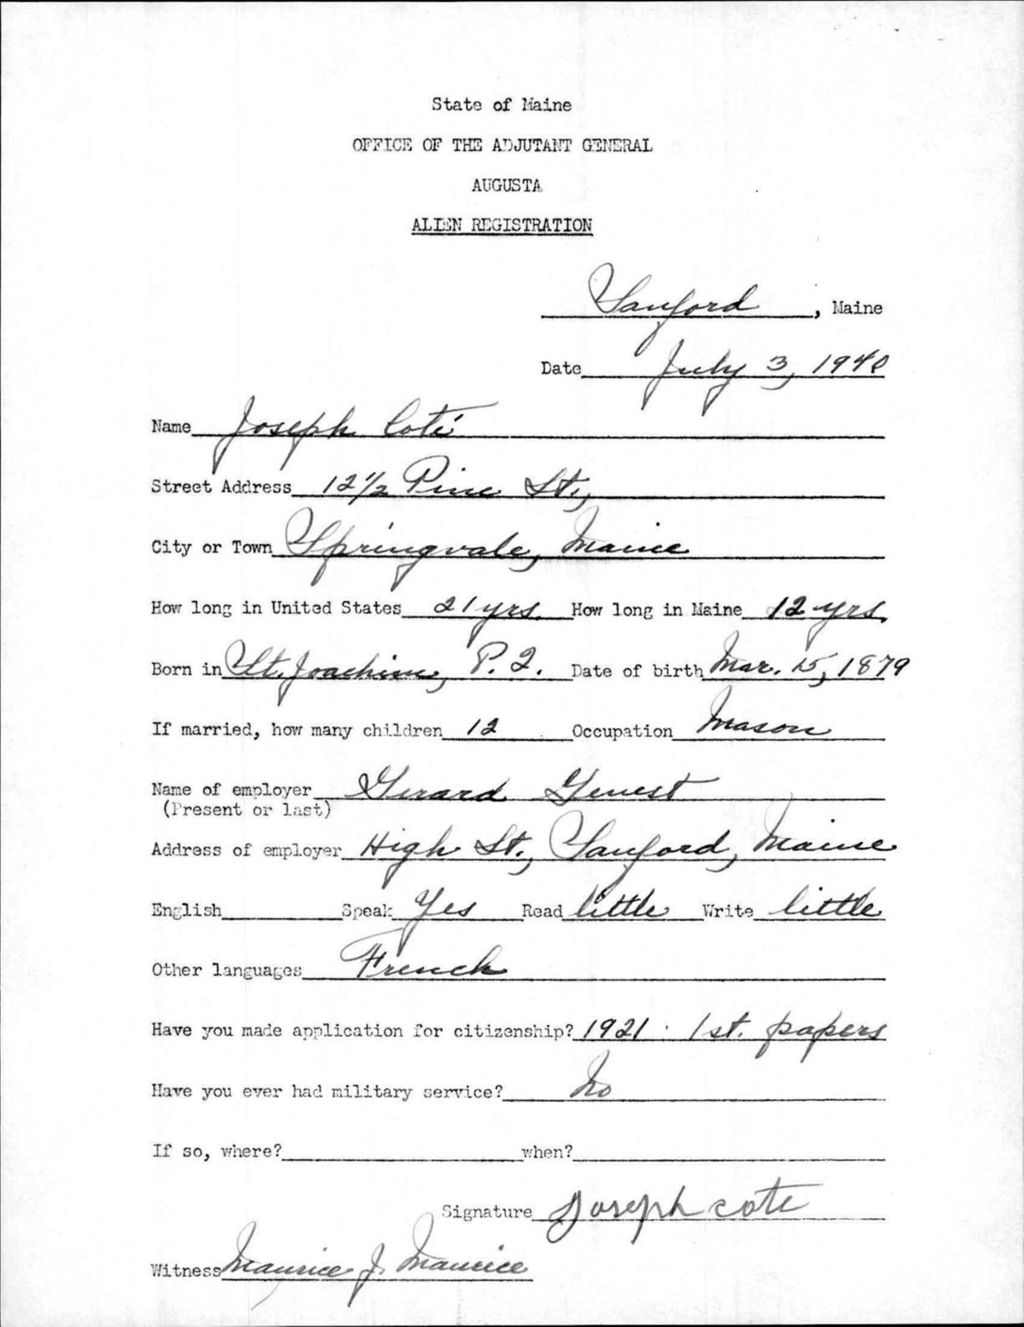 State of Maine
OFFICE OF THE ADJUTANT GENERAL
AUGUSTA
ALIEN REGISTRATION
Sanford, Maine
Date July 3, 1940
Name Joseph Coté
Street Address 12 1/2 Pine St.,
City or Town Springvale, Maine
How long in United States 21 yrs. How long in Maine 12 yrs.
Born in St. Joachim, P. Q. Date of birth Mar. 15, 1879
If married, how many children 12 Occupation Mason
Name of employer Gerard Genest
(Present or last)
Address of employer High St., Sanford, Maine
English Speak Yes Read little Write little
Other languages French
Have you made application for citizenship? 1921 1st. papers
Have you ever had military service? No
If so, where? when?
Signature Joseph cote
Witness Maurice J. Maurice